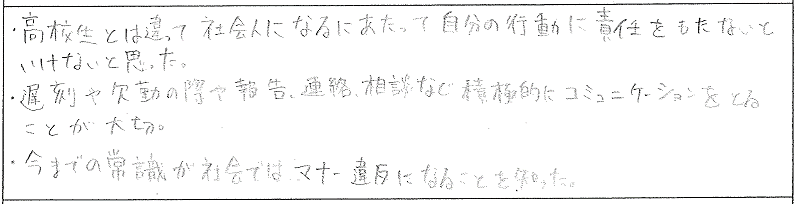 ・高校生とは違って社会人になるにあたって自分の行動に責任をもたないと
いけないと思った。
・遅刻や欠勤の際や報告、連絡、相談など積極的にコミュニケーションをとる
ことが大切。
・今までの常識が社会ではマナー違反になることを知った。